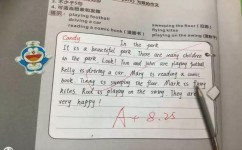 playing football
driving a car
reading a comic book
sweeping the floor
flying kites
playing on the swing
Candy
In the park
It is a beautiful park. There are many children
in the park. Look! Tim and John are playing football
Kelly is driving a car. Mary is reading a comic
book. is sweeping the floor. Mark is flying
kites. is playing on the swing. They are
very happy!
A+ 8.25